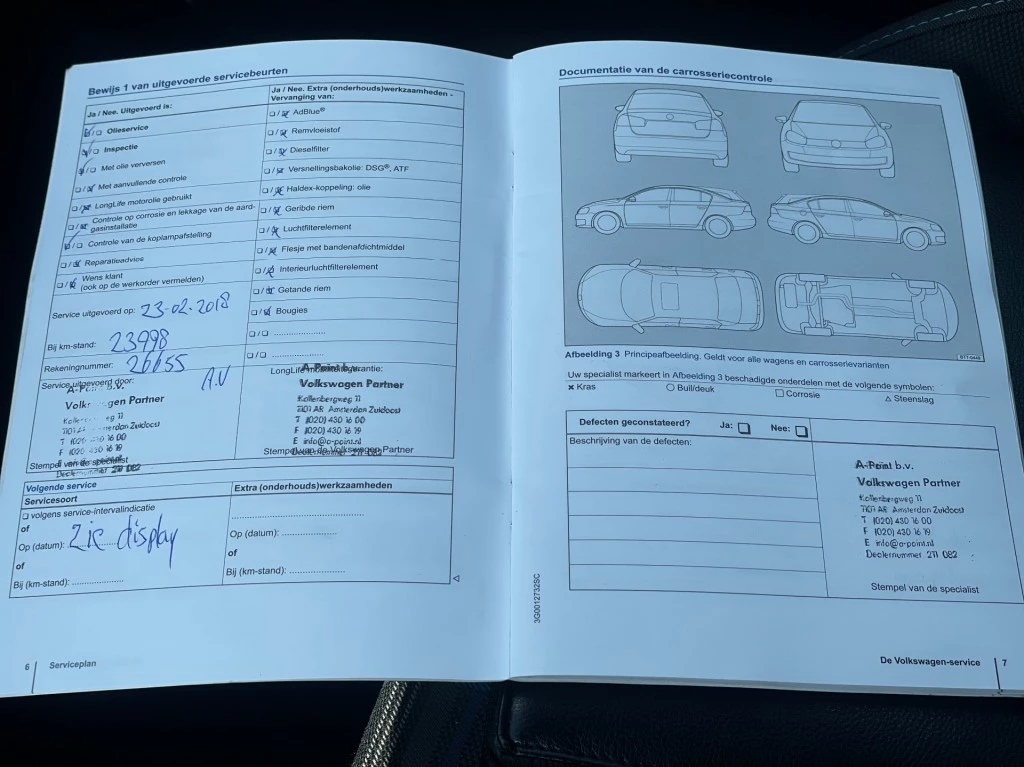 Bewijs 1 van uitgevoerde servicebeurten
Ja / Nee. Uitgevoerd is:
Olieservice
Inspectie
Met olie verversen
Met aanvullende controle
LongLife motorolie gebruikt
Controle op corrosie en lekkage van de aard-
gasinstallatie
Controle van de koplampafstelling
Reparatieadvies
Wens klant
(ook op de werkorder vermelden)
Service uitgevoerd op: 23-02-2018
Bij km-stand: 23998
Rekeningnummer: 26655
Service uitgevoerd door: A.V
A-Point b.v.
Volkswagen Partner
Kollenbergweg 11
1101 AR Amsterdam Zuidoost
T (020) 430 16 00
F (020) 430 16 19
E info@a-point.nl
Dealernummer 211 082
Stempel van de specialist
Ja / Nee. Extra (onderhouds)werkzaamheden -
Vervanging van:
AdBlue®
Remvloeistof
Dieselfilter
Versnellingsbakolie: DSG®, ATF
Haldex-koppeling: olie
Geribde riem
Luchtfilterelement
Flesje met bandenafdichtmiddel
Interieurluchtfilterelement
Getande riem
Bougies
A-Point b.v.
Volkswagen Partner
Kollenbergweg 11
1101 AR Amsterdam Zuidoost
T (020) 430 16 00
F (020) 430 16 19
E info@a-point.nl
Stempel van de Volkswagen Partner
Dealernummer 211 082
Volgende service
Servicesoort
volgens service-intervalindicatie
of
Op (datum): Zie display
of
Bij (km-stand):
Extra (onderhouds)werkzaamheden
Op (datum):
of
Bij (km-stand):
6 Serviceplan
Documentatie van de carrosseriecontrole
B1T-0446
Afbeelding 3 Principeafbeelding. Geldt voor alle wagens en carrosserievarianten
Uw specialist markeert in Afbeelding 3 beschadigde onderdelen met de volgende symbolen:
× Kras ○ Buil/deuk □ Corrosie △ Steenslag
Defecten geconstateerd? Ja: Nee:
Beschrijving van de defecten:
A-Point b.v.
Volkswagen Partner
Kollenbergweg 11
1101 AR Amsterdam Zuidoost
T (020) 430 16 00
F (020) 430 16 19
E info@a-point.nl
Dealernummer 211 082
Stempel van de specialist
3G0012732BC
De Volkswagen-service 7